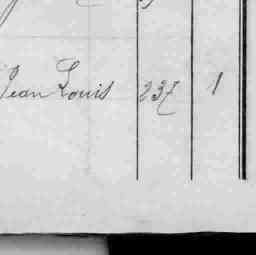 Jean Louis 237 1